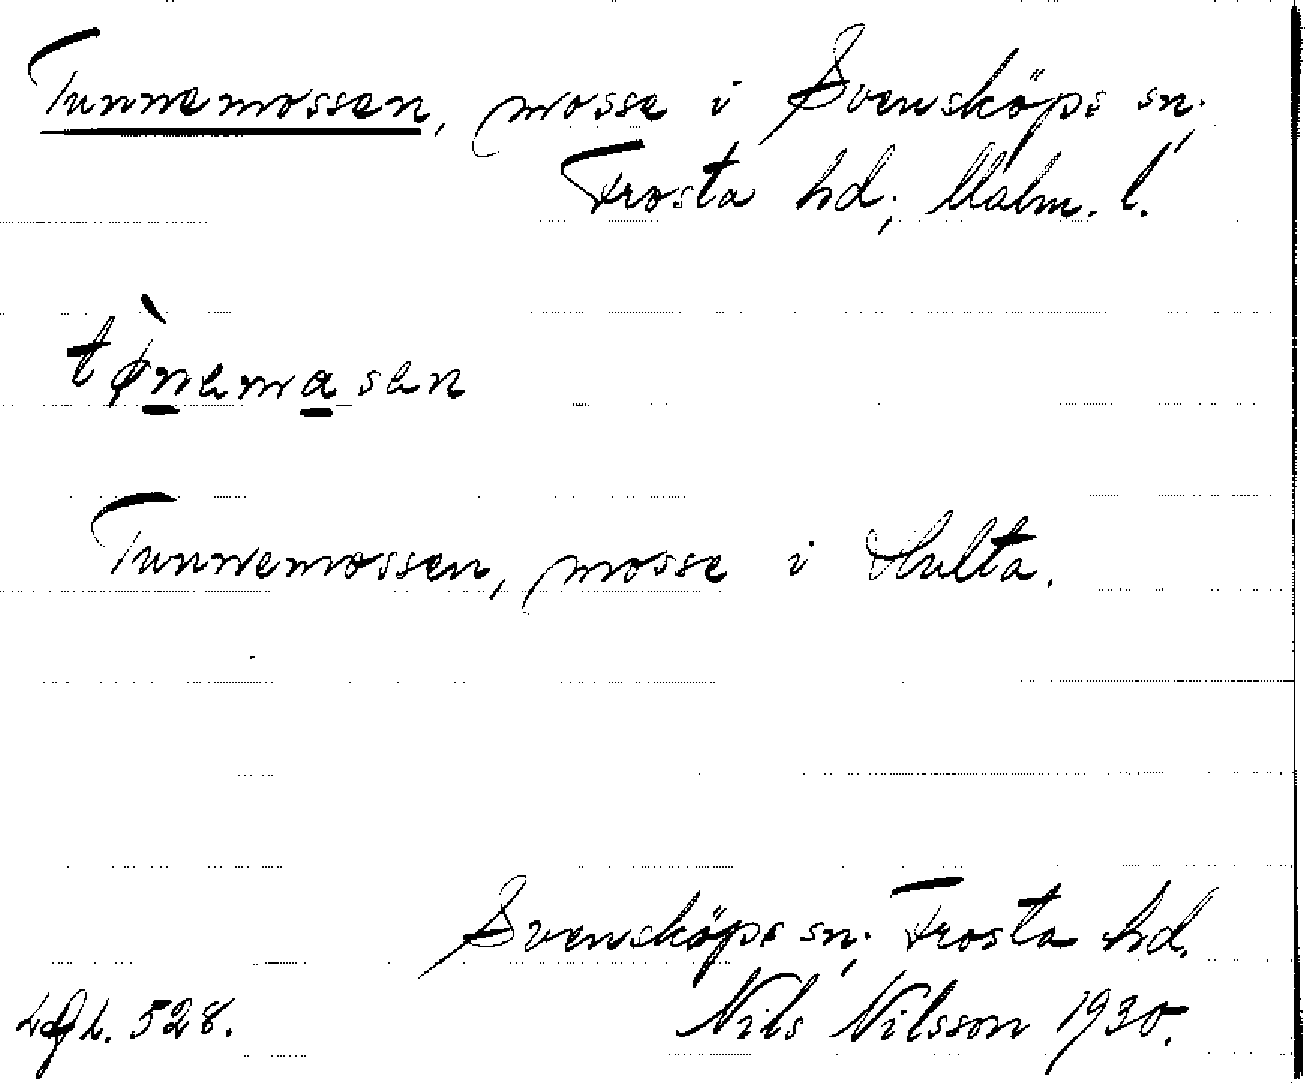 Tunnemossen, mosse i Svensköps sn;
Frosta hd; Malm. l.
tø̀nemasen
Tunnemossen, mosse i Hulta.
Svensköps sn; Frosta hd.
528.
Nils Nilsson 1930.